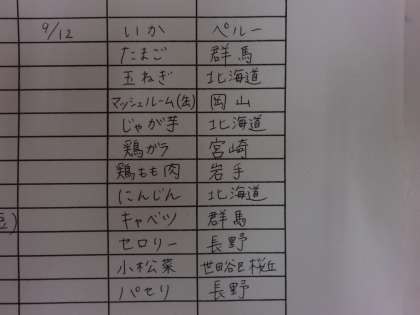 9/12 いか ペルー
たまご 群馬
玉ねぎ 北海道
マッシュルーム(缶) 岡山
じゃが芋 北海道
鶏ガラ 宮崎
鶏もも肉 岩手
にんじん 北海道
豆) キャベツ 群馬
セロリー 長野
小松菜 世田谷区桜丘
パセリ 長野